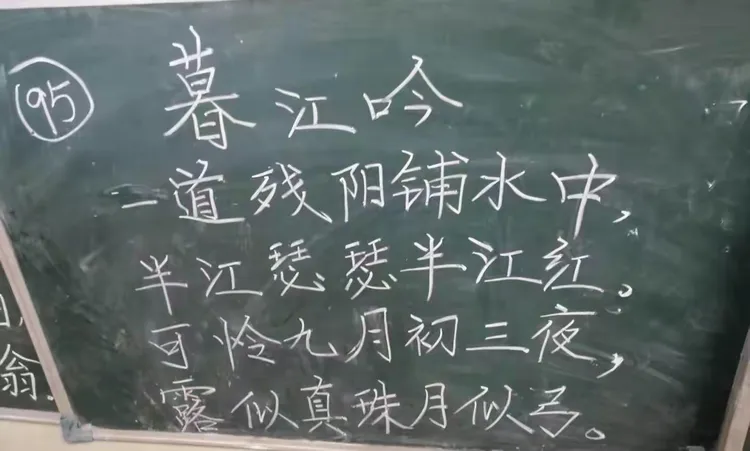 95
暮江吟
一道残阳铺水中,
半江瑟瑟半江红。
可怜九月初三夜,
露似真珠月似弓。
翁.